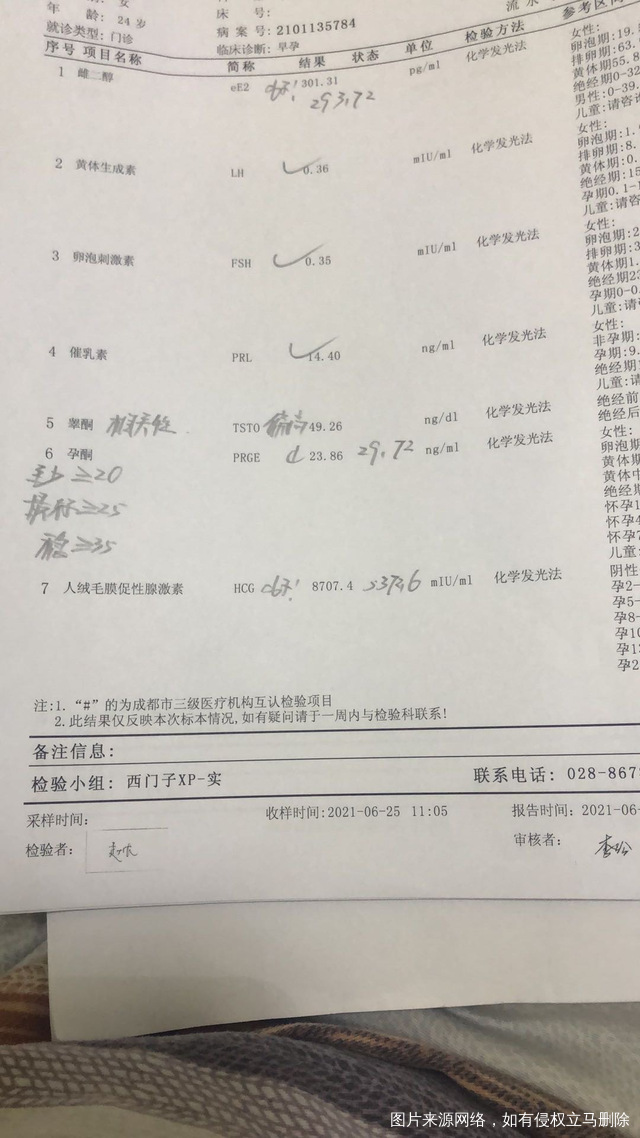 年 龄: 24 岁 床 号:
就诊类型: 门诊 病 案 号: 2101135784
临床诊断: 早孕
序号 项目名称 简称 结果 状态 单位 检验方法 参考区间
1 雌二醇 eE2 301.31 pg/ml 化学发光法
293.72
2 黄体生成素 LH 0.36 mIU/ml 化学发光法
3 卵泡刺激素 FSH 0.35 mIU/ml 化学发光法
4 催乳素 PRL 14.40 ng/ml 化学发光法
5 睾酮 TSTO 偏高 49.26 ng/dl 化学发光法
6 孕酮 PRGE 23.86 29.72 ng/ml 化学发光法
≥20
≥25
≥35
7 人绒毛膜促性腺激素 HCG 8707.4 mIU/ml 化学发光法
女性:
卵泡期:19.
排卵期:63.
黄体期55.8
绝经期0-32
男性:0-39.
儿童:请咨询
女性:
卵泡期:1.
排卵期:8.
黄体期:0.
绝经期:15
孕期0.1-1
儿童:请咨
女性:
卵泡期:2
排卵期:3
黄体期1.
绝经期23
孕期0-0.
儿童:请
女性:
非孕期:
孕期:9.
绝经期:
儿童:请
绝经前
绝经后
女性:
卵泡期
黄体期
黄体中
绝经期
怀孕1
怀孕4
怀孕7
儿童:
阴性
孕2-
孕5-
孕8-
孕10
孕1
孕2
注:1. “#”的为成都市三级医疗机构互认检验项目
2.此结果仅反映本次标本情况,如有疑问请于一周内与检验科联系!
备注信息:
检验小组: 西门子XP-实 联系电话: 028-867
采样时间: 收样时间:2021-06-25 11:05 报告时间: 2021-06-
检验者: 审核者:
图片来源网络，如有侵权立马删除